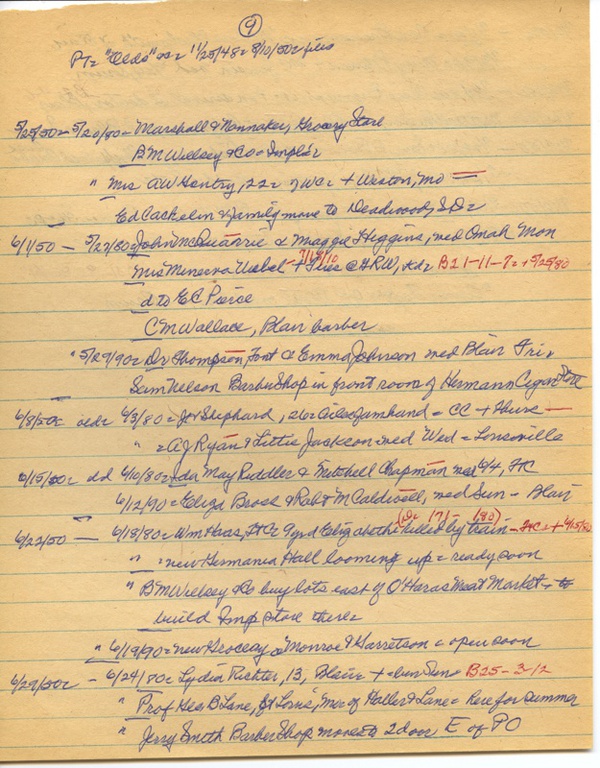 9
Pt= "Olds" == 11/25/48 = 8/10/50= files
5/25/50 — 5/20/80= Marshall & Wonnaker, Grocery Store
BM Willsey & Co = Impler
" Mrs AW Gentry, 22= 7 WC= + Weston, Mo
Ed Cachelin & family move to Deadwood, S D=
6/1/50 — 5/27/80= John McQuarrie & Maggie Higgins, wed Omah Mon
7/18/10
Mrs Minerva Uebel + Tues @ HRW, B21-11-7= + 5/25/80
d to EC Pierce
CM Wallace, Blair barber
" 5/29/90= Dr Thompson, Font & Emma Johnson wed Blair Fri.
Sam Nelson Barber Shop in front room of Hermann Cigar Store
6/8/50= 6/3/80= Shephard, 26= = CC +
" = AJ Ryan & Lettie Jackson wed Wed = Lonsville
6/15/50= dd 6/10/80= Ida May Riddler & Mitchell Chapman wed 6/4, FC
6/12/90= Eliza Brock & Robt McCaldwell, wed Sun - Blair
6/22/50 — 6/18/80= Wm Haas, Ft C= 9 yrd killed by train
" = new Hermania Hall looming up = ready soon
" BM Willsey & Co buy lots east of O'Haras Meat Market = to
build Imp Store there=
" 6/19/90= new Grocery = Monroe & Garretson = open soon
6/29/50= - 6/24/80= Lydia Richter, 13, Blair + Sun= B25-3-12
" Prof Geo B Lane, St Louis, Mr of Haller & Lane = here for summer
" Jerry Smith Barber Shop moves to 2 door E of PO